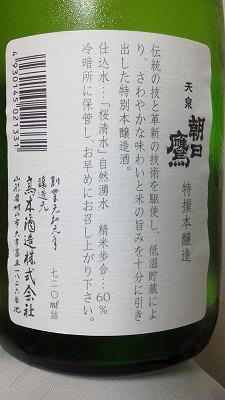 天泉
朝日鷹
特撰本醸造
伝統の技と革新の技術を駆使し、低温貯蔵によ
り、さわやかな味わいと米の旨みを十分に引き
出した特別本醸造酒。
仕込水…「桜清水」自然湧水 精米歩合…60%
冷暗所に保管し、お早めにお召し上がり下さい。
創業元和元年 七二〇ml詰
醸造元
高木酒造株式会社
4930145021331